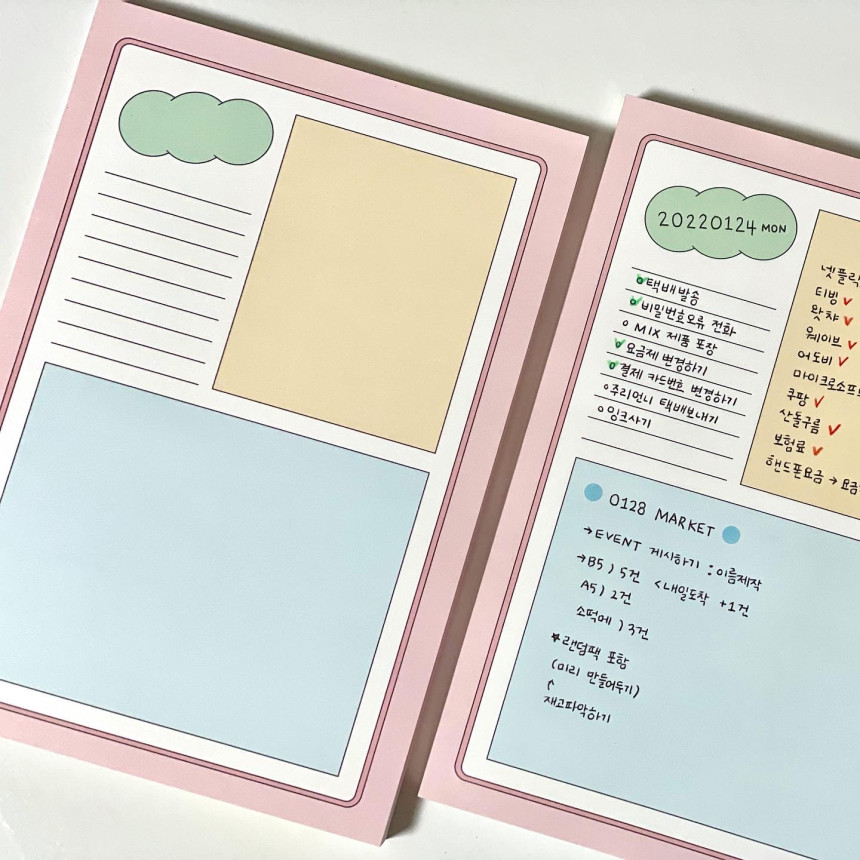 20220124 MON
택배발송
비밀번호오류 전화
MIX 제품 포장
요금제 변경하기
결제 카드번호 변경하기
주리언니 택배보내기
잉크사기
넷플릭
티빙
왓챠
웨이브
어도비
마이크로소프
쿠팡
산돌구름
보험료
핸드폰요금 → 요금
0128 MARKET
→EVENT 게시하기 : 이름제작
→B5) 5건 <내일도착 +1건
A5) 2건
소떡메) 3건
★랜덤팩 포함
(미리 만들어두기)
↑
재고파악하기